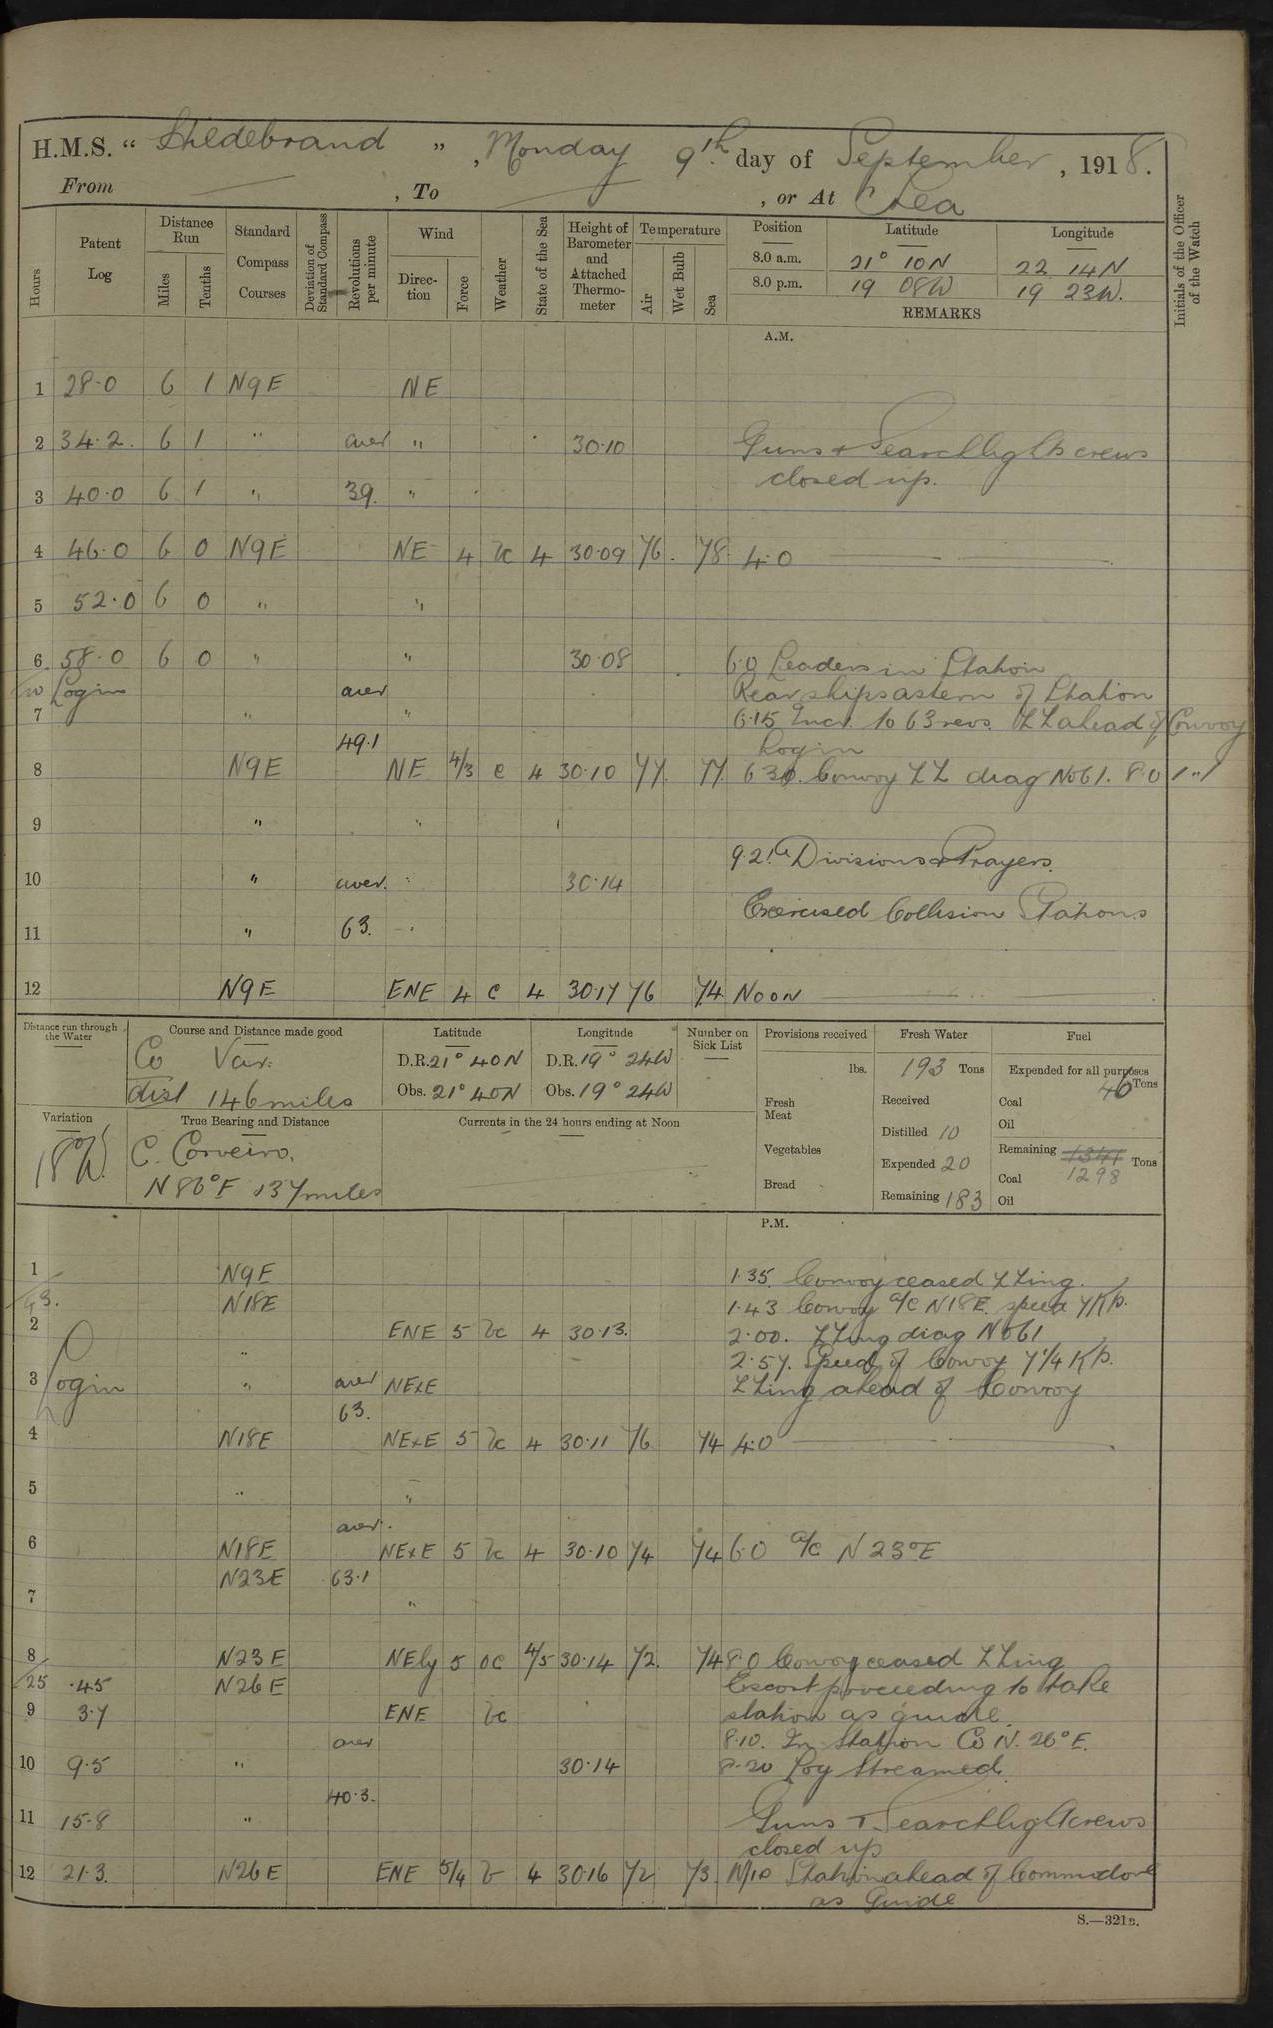 H.M.S. “ Hildebrand ” , Monday 9th day of September , 1918.
From — , To — , or At Sea
Hours
Patent Log
Distance Run
Miles
Tenths
Standard Compass Courses
Deviation of Standard Compass
Revolutions per minute
Wind
Direction
Force
Weather
State of the Sea
Height of Barometer and Attached Thermometer
Temperature
Air
Wet Bulb
Sea
Position Latitude Longitude
8.0 a.m. 21° 10N 22 14N
8.0 p.m. 19 08W 19 23W.
REMARKS
Initials of the Officer of the Watch
A.M.
1 28.0 6 1 N9E NE
2 34.2. 6 1 " aver " 30.10 Guns + Searchlight crews
closed up.
3 40.0 6 1 " 39. "
4 46.0 6 0 N9E NE 4 bc 4 30.09 76. 78. 4.0
5 52.0 6 0 " "
6 58.0 6 0 " " 30.08 6.0 Leaders in Station
Log in aver Rear ships astern of Station
7 " " 6.15 Incr. to 63 revs. ZZ ahead of Convoy
49.1 Log in
8 N9E NE 4/3 c 4 30.10 77. 77. 630. Convoy ZZ diag No61. 8.0
9 " "
9.21 Divisions & Prayers.
10 " aver. " 30.14
Exercised Collision Stations
11 " 63.
12 N9E ENE 4 c 4 30.17 76 74 Noon
Distance run through the Water
Course and Distance made good
Co Var:
dist 146 miles
Latitude
D.R. 21° 40N
Obs. 21° 40N
Longitude
D.R. 19° 24W
Obs. 19° 24W
Number on Sick List
Provisions received
lbs.
Fresh Meat
Vegetables
Bread
Fresh Water
193 Tons
Received
Distilled 10
Expended 20
Remaining 183
Fuel
Expended for all purposes
46 Tons
Coal
Oil
Remaining 1341 Tons
Coal 1298
Oil
Variation
18°W.
True Bearing and Distance
C. Corveiro.
N 86°E 137 miles
Currents in the 24 hours ending at Noon
P.M.
1 N9E 1.35. Convoy ceased ZZing.
43. N18E 1.43 Convoy a/c N18E. speed 7Kts.
2 ENE 5 bc 4 30.13. 2.00. ZZing diag No61
" 2.57. Speed of Convoy 7 1/4 Kts.
3 Log in " aver NExE ZZing ahead of Convoy
63.
4 N18E NExE 5 bc 4 30.11 76 74 4.0
5 " "
aver.
6 N18E NExE 5 bc 4 30.10 74 74 6.0 a/c N23°E
N23E 63.1
7 "
8 N23E NEly 5 oc 4/5 30.14 72. 74 8.0 Convoy ceased ZZing
25 .45 N26E Escort proceeding to take
9 3.7 ENE bc station as guide.
aver 8.10. In Station Co N. 26°E.
10 9.5 " 30.14 8.20 Log Streamed.
40.3.
11 15.8 " Guns + Searchlight crews
closed up
12 21.3. N26E ENE 5/4 b 4 30.16 72 73 Station ahead of Commodore
as Guide
S.—321B.